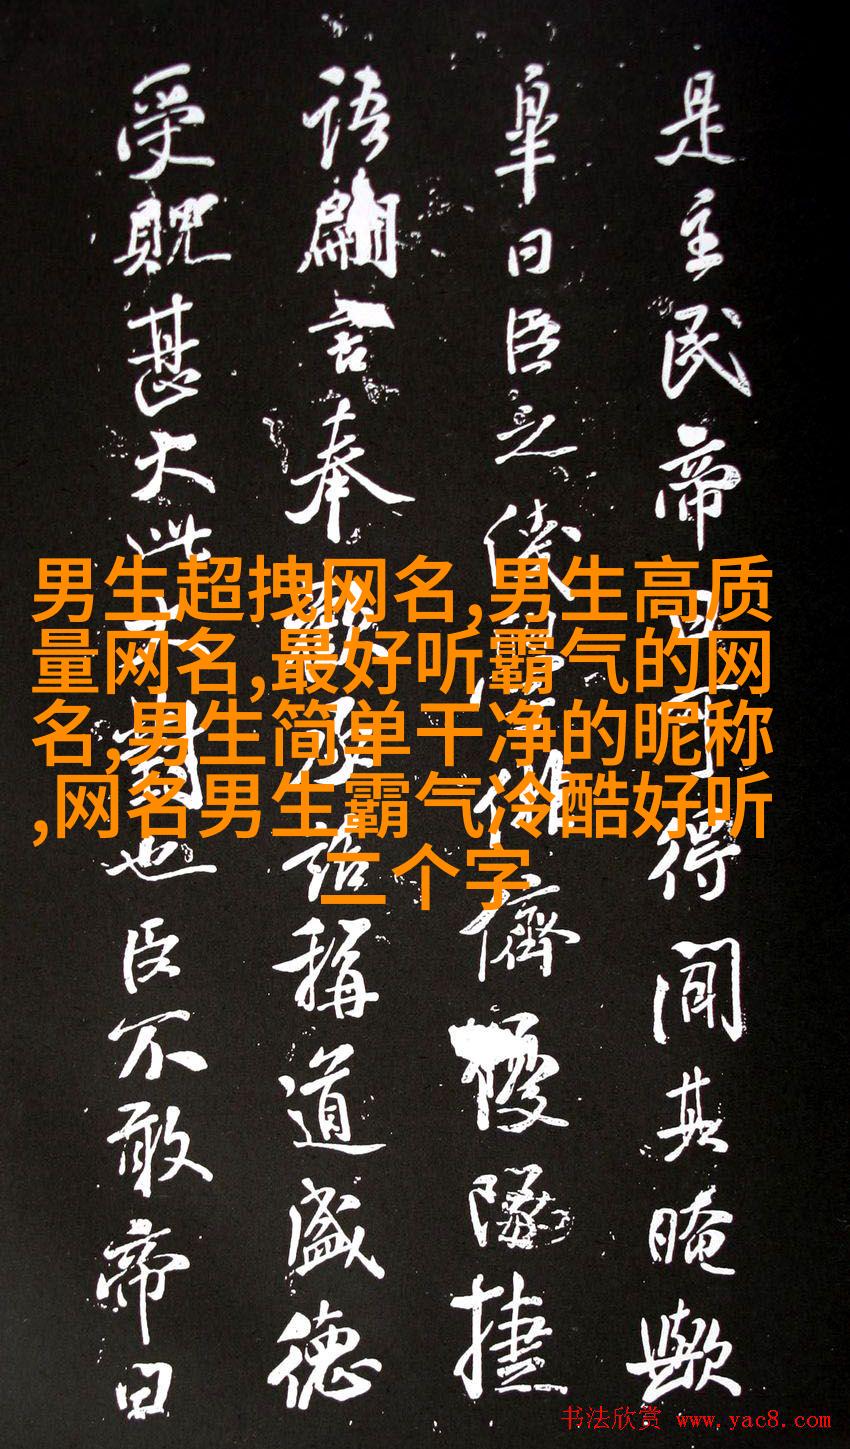 男生超拽网名,男生高质
量网名,最好听霸气的网
名,男生简单干净的昵称
,网名男生霸气冷酷好听
二个字
是主民帝曰可得聞其晻歟
皋曰臣之儕優隊捷
語翩言奉稱道盛德
受貺甚大此也臣不敢帝曰
书法欣赏 www.yac8.com